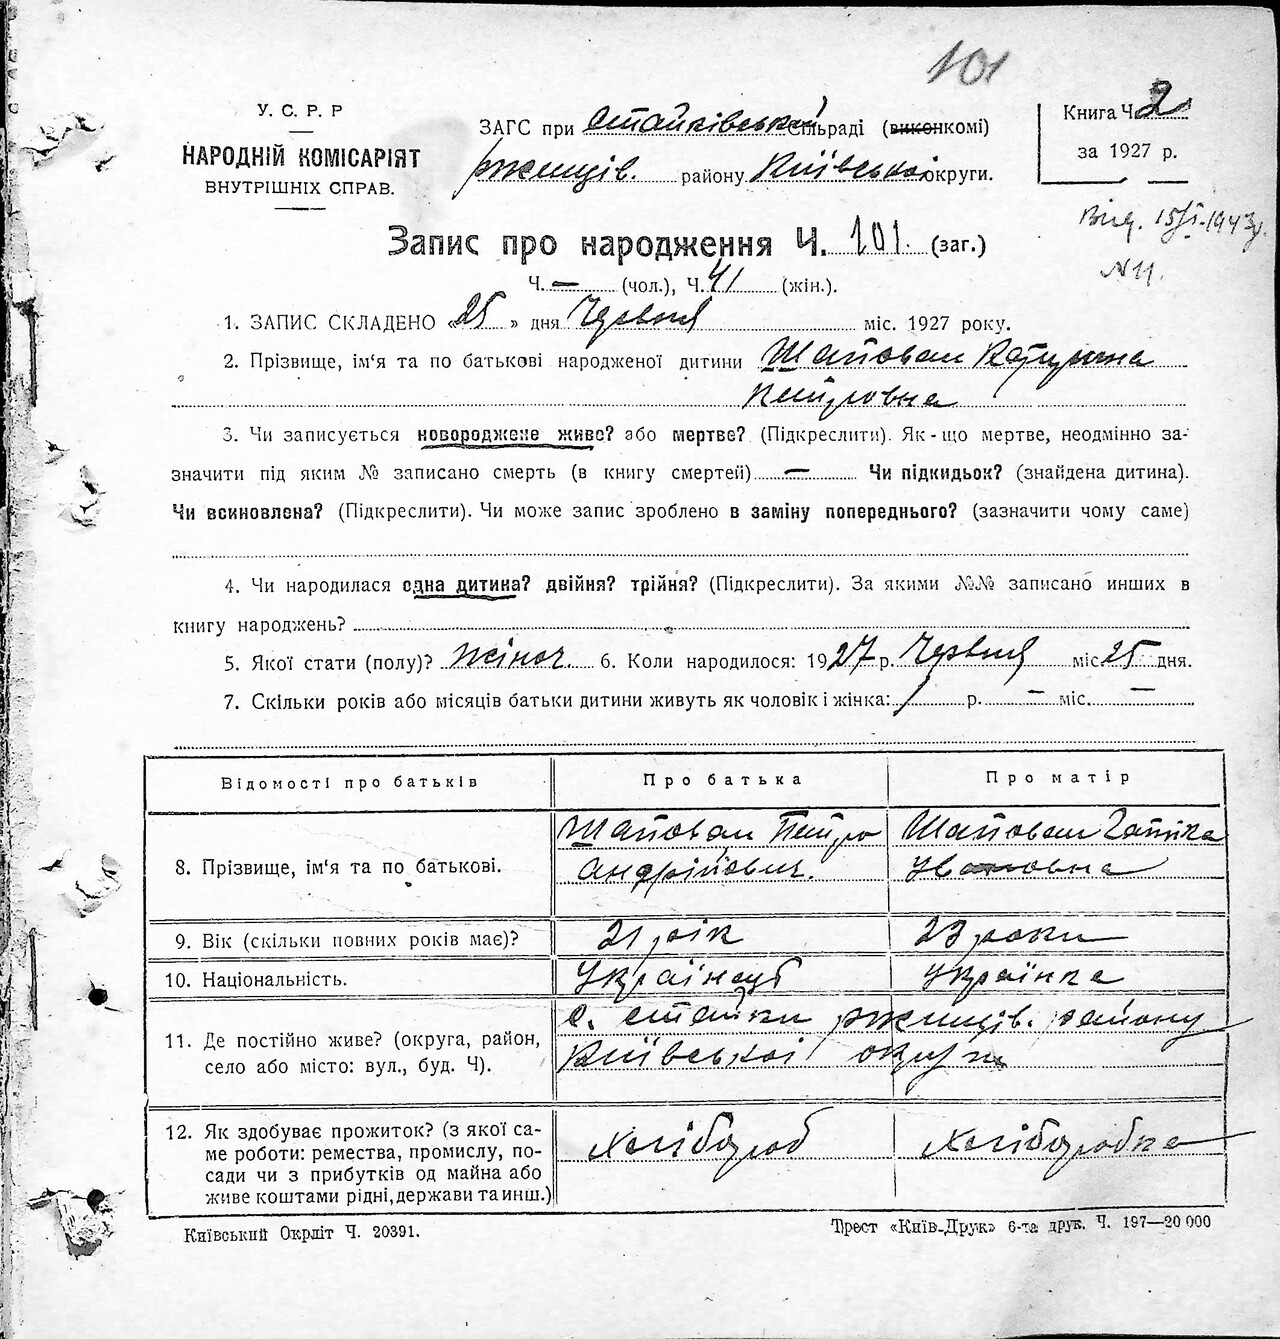 101
У. С. Р. Р
НАРОДНІЙ КОМІСАРІЯТ
ВНУТРІШНІХ СПРАВ.
ЗАГС при Стайківській сільраді (виконкомі)
Ржищів. району Київської округи.
Книга Ч. 2
за 1927 р.
Вид. 15/VI-1943р.
N 11.
Запис про народження Ч. 101. (заг.)
Ч. — (чол.), Ч. 41 (жін.).
1. ЗАПИС СКЛАДЕНО «25» дня Червня міс. 1927 року.
2. Прізвище, ім‘я та по батькові народженої дитини Шаповал Катерина
Петровна
3. Чи записується новороджене живе? або мертве? (Підкреслити). Як-що мертве, неодмінно за-
значити під яким № записано смерть (в книгу смертей) — Чи підкидьок? (знайдена дитина).
Чи всиновлена? (Підкреслити). Чи може запис зроблено в заміну попереднього? (зазначити чому саме)
4. Чи народилася одна дитина? двійня? трійня? (Підкреслити). За якими №№ записано инших в
книгу народжень?
5. Якої стати (полу)? жіноч. 6. Коли народилося: 1927 р. Червня міс. 25 дня.
7. Скільки років або місяців батьки дитини живуть як чоловік і жінка: 1 р. — міс. —
Відомості про батьків Про батька Про матір
8. Прізвище, ім‘я та по батькові. Шаповал Петро Андрійович. Шаповал Ївановна
9. Вік (скільки повних років має)? 21 рік 23 роки
10. Національність. Українець Українка
11. Де постійно живе? (округа, район, с. Стайки Ржищів. району
село або місто: вул., буд. Ч). Київської округи
12. Як здобуває прожиток? (з якої са- Хлібороб Хліборобка
ме роботи: ремества, промислу, по-
сади чи з прибутків од майна або
живе коштами рідні, держави та инш.)
Київський Окрліт Ч. 20391.
Трест «Київ-Друк» 6-та друк. Ч. 197—20 000